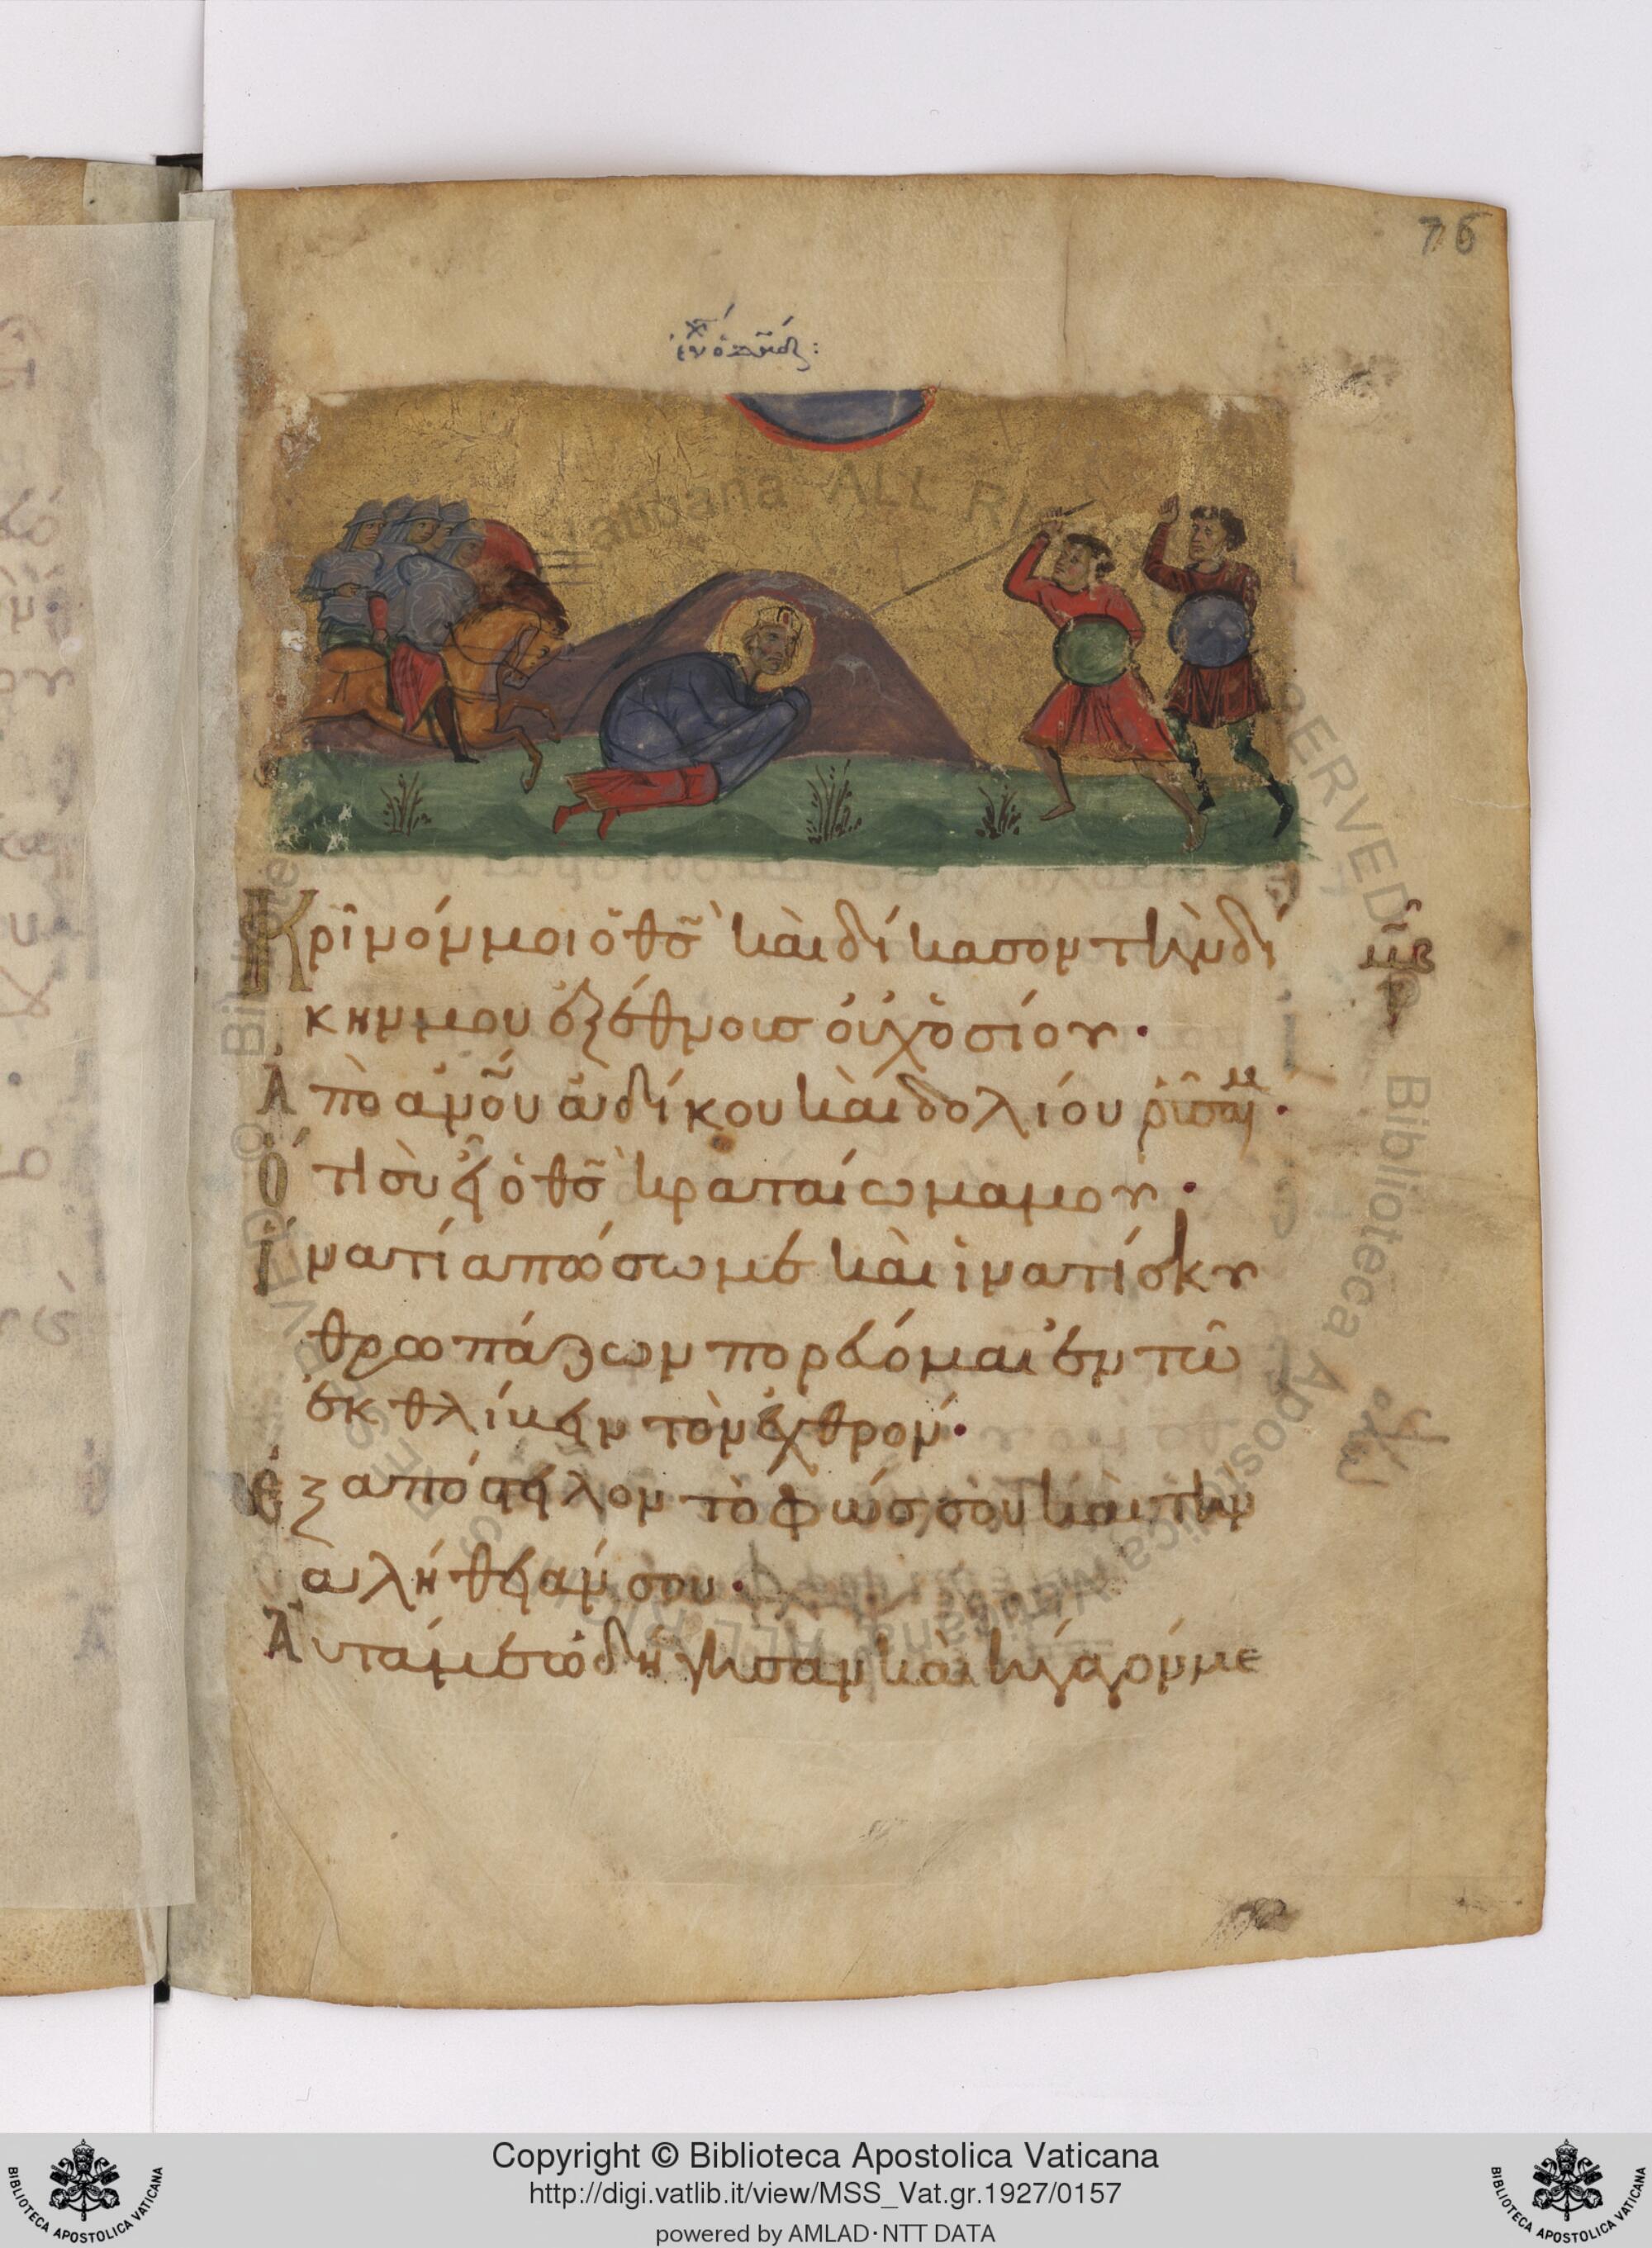 76
Κρῖνόν μοι ὁ θς̃ καὶ δίκασον τὴν δί
κην μου ἐξ ἔθνους οὐχ ὁσίου·
Ἀπὸ ἀν̅ου ἀδίκου καὶ δολίου ῥῦσαί μ·
Ὅτι σὺ εἶ ὁ θς̃ κραταίωμα μου·
ἵνατί ἀπώσω με καὶ ἱνατί σκυ
θρωπάζων πορεύομαι ἐν τῶ
ἐκθλίβειν τὸν ἐχθρόν·
Ἐξαπόστειλον τὸ φῶς σου καὶ τὴν
ἀλήθειάν σου·
Αὐτά με ὡδήγησαν καὶ ἤγαγόν με
Copyright © Biblioteca Apostolica Vaticana
http://digi.vatlib.it/view/MSS_Vat.gr.1927/0157
powered by AMLAD·NTT DATA
BIBLIOTECA APOSTOLICA VATICANA
BIBLIOTECA APOSTOLICA VATICANA